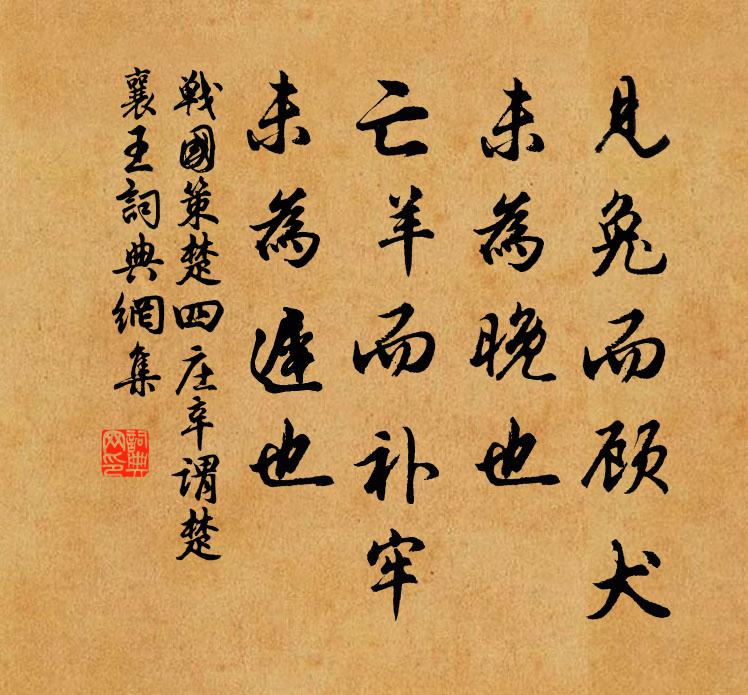 見兔而顾犬
未為晚也
亡羊而补牢
未為遲也
戰國策楚四庄辛謂楚
襄王詞典網集
詞典網印